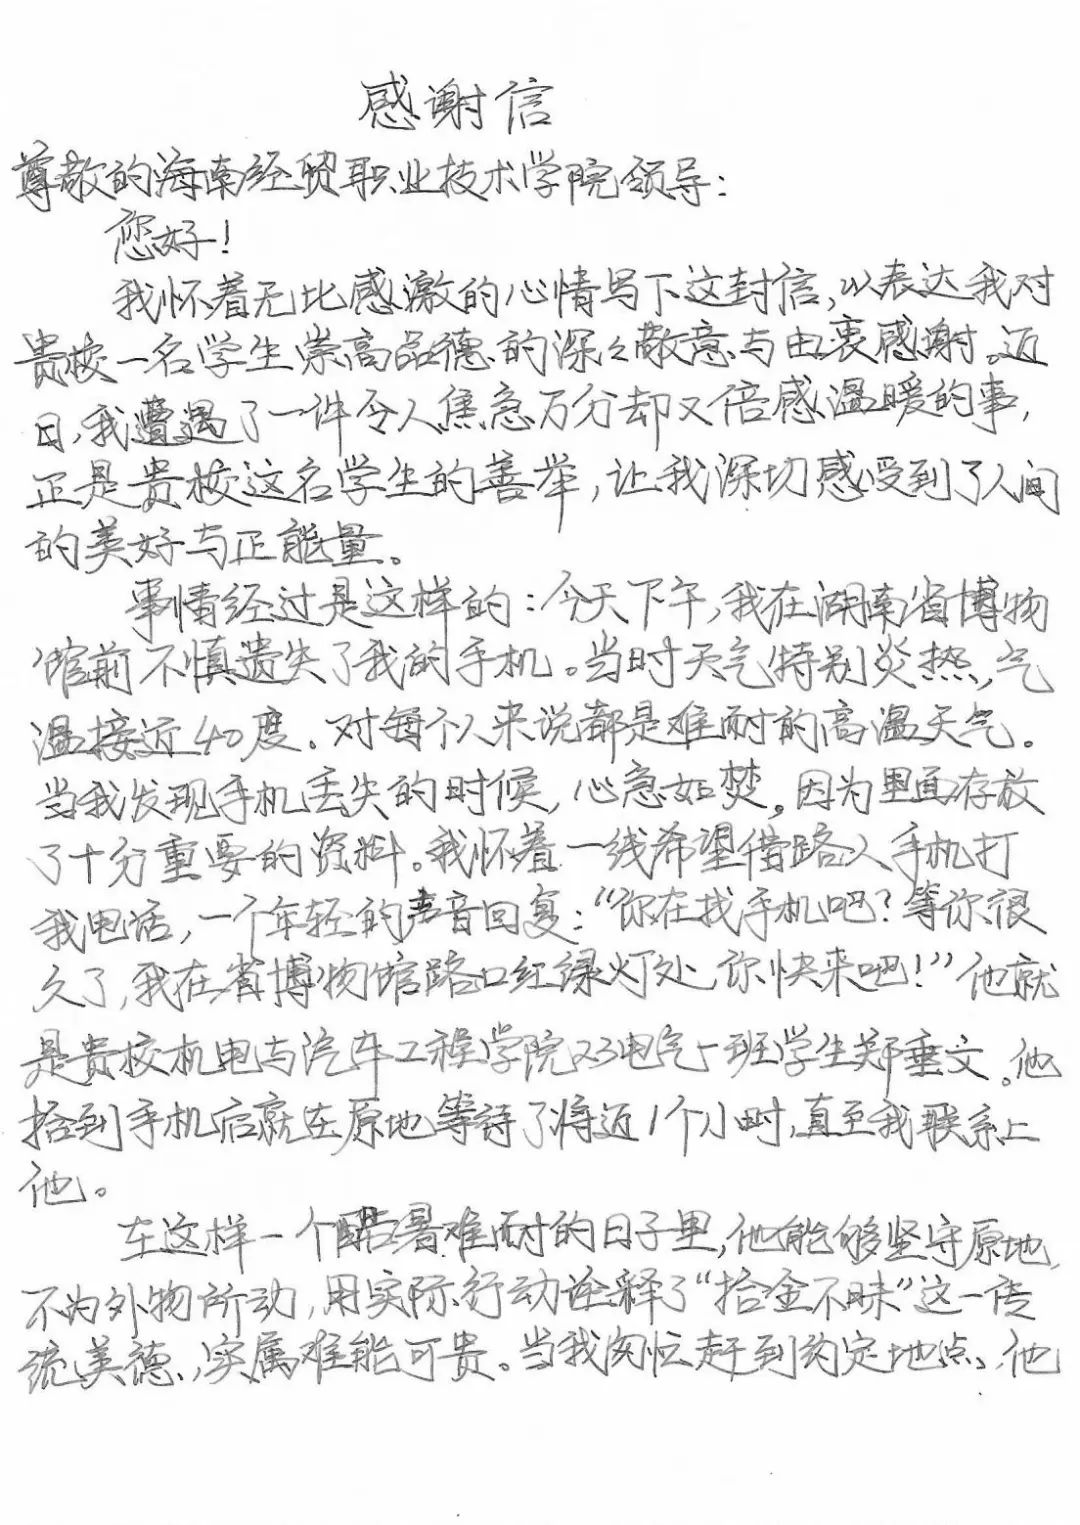 感谢信
尊敬的海南经贸职业技术学院领导：
您好！
我怀着无比感激的心情写下这封信，以表达我对
贵校一名学生崇高品德的深々敬意与由衷感谢。近
日，我遭遇了一件令人焦急万分却又倍感温暖的事，
正是贵校这名学生的善举，让我深切感受到了人间
的美好与正能量。
事情经过是这样的：今天下午，我在湖南省博物
馆前不慎遗失了我的手机。当时天气特别炎热，气
温接近40度。对每个人来说都是难耐的高温天气。
当我发现手机丢失的时候，心急如焚。因为里面存放
了十分重要的资料。我怀着一线希望借路人手机打
我电话，一个年轻的声音回复：“你在找手机吧？等你很
久了，我在省博物馆路口红绿灯处，你快来吧！”他就
是贵校机电与汽车工程学院23电气1班学生郑垂文。他
捡到手机后就在原地等待了将近1个小时，直至我联系上
他。
在这样一个酷暑难耐的日子里，他能够坚守原地，
不为外物所动，用实际行动诠释了“拾金不昧”这一传
统美德，实属难能可贵。当我匆忙赶到约定地点，他